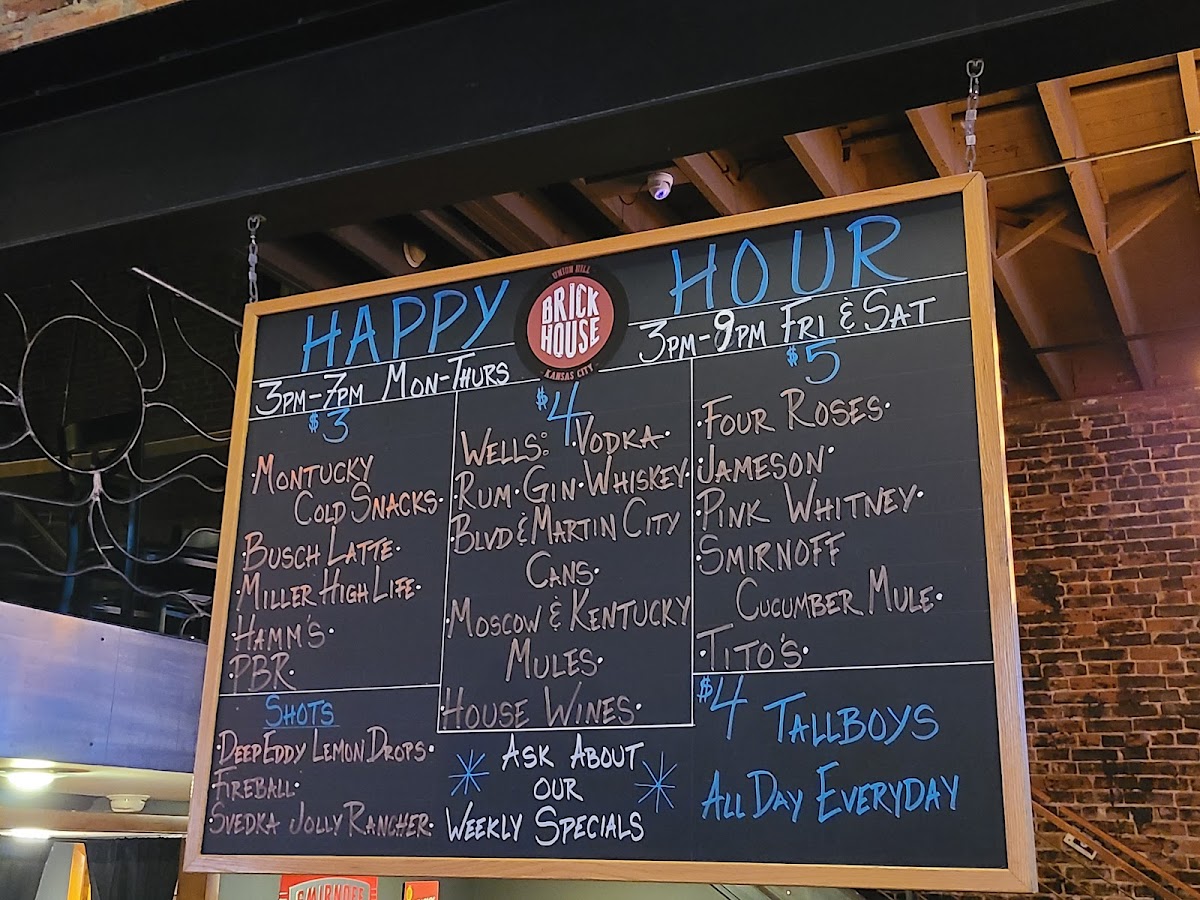 HAPPY HOUR
UNION HILL
BRICK
HOUSE
KANSAS CITY
3PM-7PM MON-THURS
3PM-9PM FRI & SAT
$3
·MONTUCKY
COLD SNACKS·
·BUSCH LATTE·
·MILLER HIGH LIFE·
·HAMM'S·
·PBR·
SHOTS
·DEEP EDDY LEMON DROPS·
·FIREBALL·
·SVEDKA JOLLY RANCHER·
$4
WELLS: VODKA·
·RUM·GIN·WHISKEY·
·BLVD & MARTIN CITY
CANS·
·MOSCOW & KENTUCKY
MULES·
·HOUSE WINES·
ASK ABOUT
OUR
WEEKLY SPECIALS
$5
·FOUR ROSES·
·JAMESON·
·PINK WHITNEY·
·SMIRNOFF
CUCUMBER MULE·
·TITO'S·
$4 TALLBOYS
ALL DAY EVERYDAY
SMIRNOFF